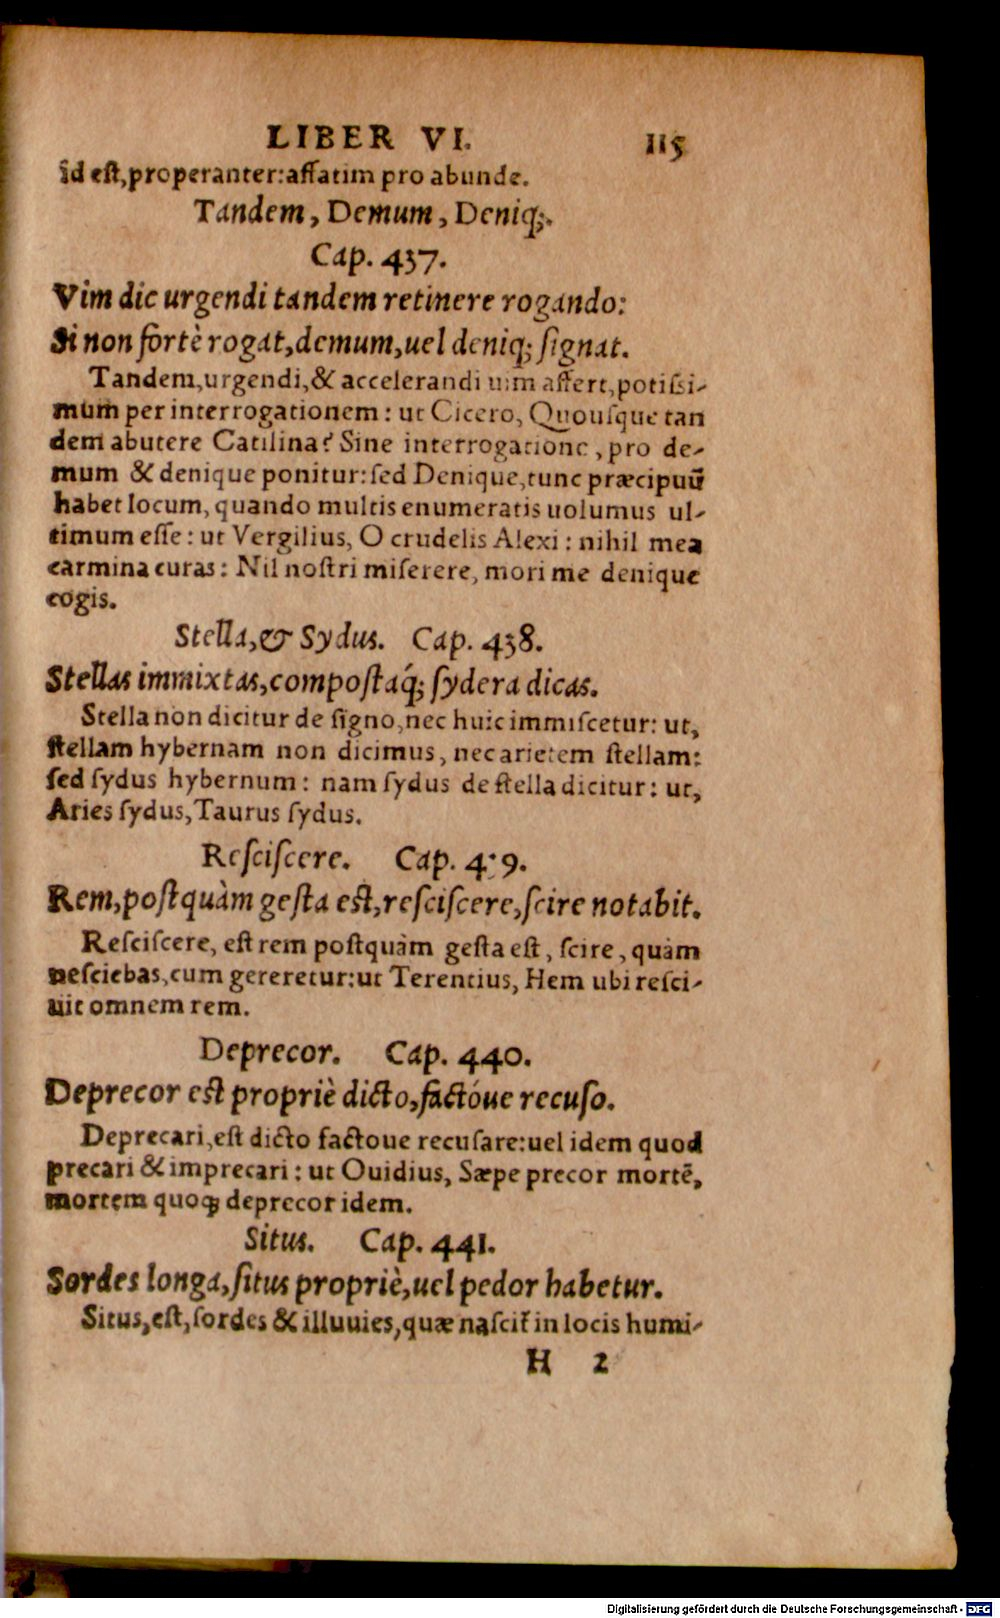 LIBER VI. 115
id est, properanter: affatim pro abunde.
Tandem, Demum, Deniq;.
Cap. 437.
Vim dic urgendi tandem retinere rogando:
Si non fortè rogat, demum, uel deniq; ſignat.
Tandem, urgendi, & accelerandi uim affert, potiſsi-
mum per interrogationem: ut Cicero, Quouſque tan
dem abutere Catilina? Sine interrogatione, pro de-
mum & denique ponitur: ſed Denique, tunc præcipuū
habet locum, quando multis enumeratis uolumus ul-
timum eſſe: ut Vergilius, O crudelis Alexi: nihil mea
carmina curas: Nil noſtri miſerere, mori me denique
cogis.
Stella, & Sydus. Cap. 438.
Stellas immixtas, compoſtaq́; ſydera dicas.
Stella non dicitur de ſigno, nec huic immiſcetur: ut,
ſtellam hybernam non dicimus, nec arietem ſtellam:
ſed ſydus hybernum: nam ſydus de ſtella dicitur: ut,
Aries ſydus, Taurus ſydus.
Reſciſcere. Cap. 439.
Rem, poſtquàm geſta eſt, reſciſcere, ſcire notabit.
Reſciſcere, eſt rem poſtquàm geſta eſt, ſcire, quàm
neſciebas, cum gereretur: ut Terentius, Hem ubi reſci-
uit omnem rem.
Deprecor. Cap. 440.
Deprecor eſt propriè dicto, factóue recuſo.
Deprecari, eſt dicto factoue recuſare: uel idem quod
precari & imprecari: ut Ouidius, Sæpe precor mortē,
mortem quoq; deprecor idem.
Situs. Cap. 441.
Sordes longa, ſitus propriè, uel pedor habetur.
Situs, eſt, ſordes & illuuies, quæ naſcit̃ in locis humi-
H 2
Digitalisierung gefördert durch die Deutsche Forschungsgemeinschaft - DFG